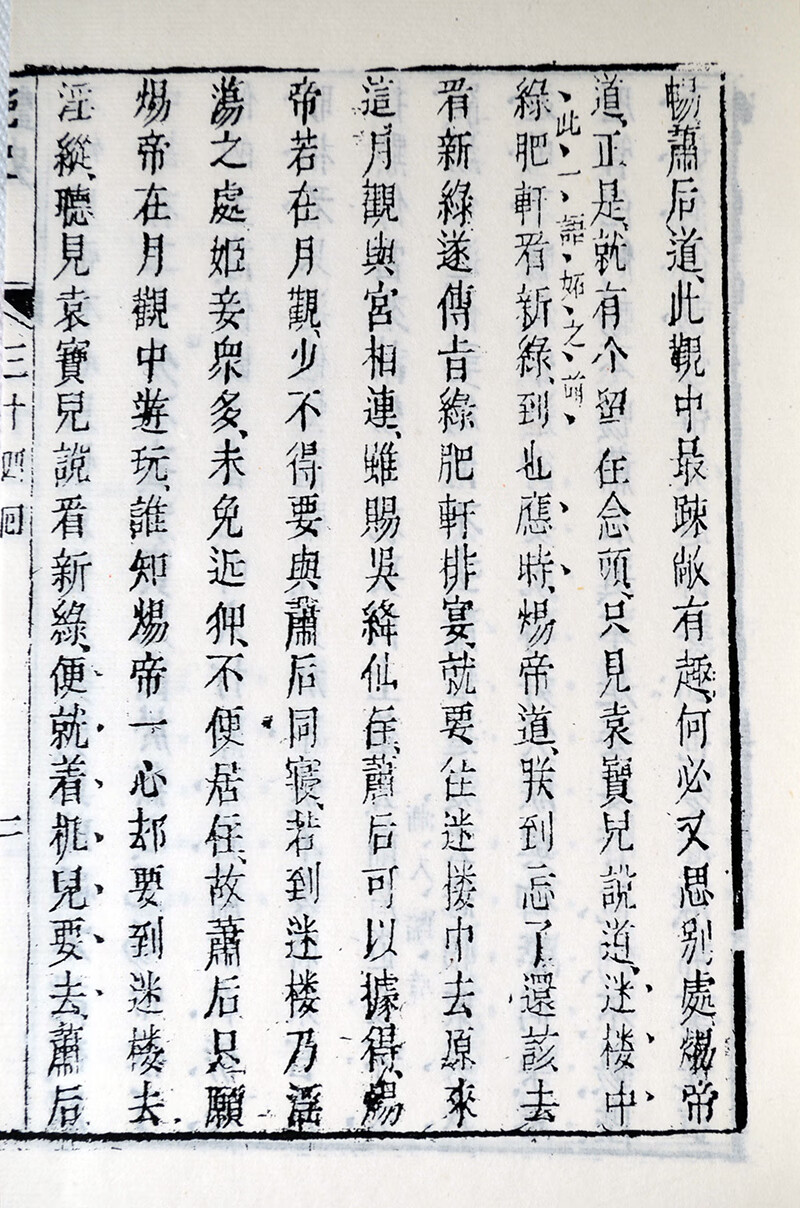 暢、蕭后道、此觀中最踈敞有趣、何必又思別處、煬帝
道、正是、就有个留在念頭、只見袁寶兒說道、迷楼中
此一語妬之萌
綠肥軒看新綠、到也應時、煬帝道、朕到忘了、還該去
看新綠、遂傳旨綠肥軒排宴、就要往迷楼中去、原來
這月觀與宮相連、雖賜吳絳仙住、蕭后可以據得、煬
帝若在月觀、少不得要與蕭后同寢、若到迷楼、乃淫
蕩之處、姬妾衆多、未免近狎、不便居住、故蕭后只願
煬帝在月觀中遊玩、誰知煬帝一心却要到迷楼去
淫縱、聽見袁寶兒說看新綠、便就着机兒要去、蕭后
三十四回
二